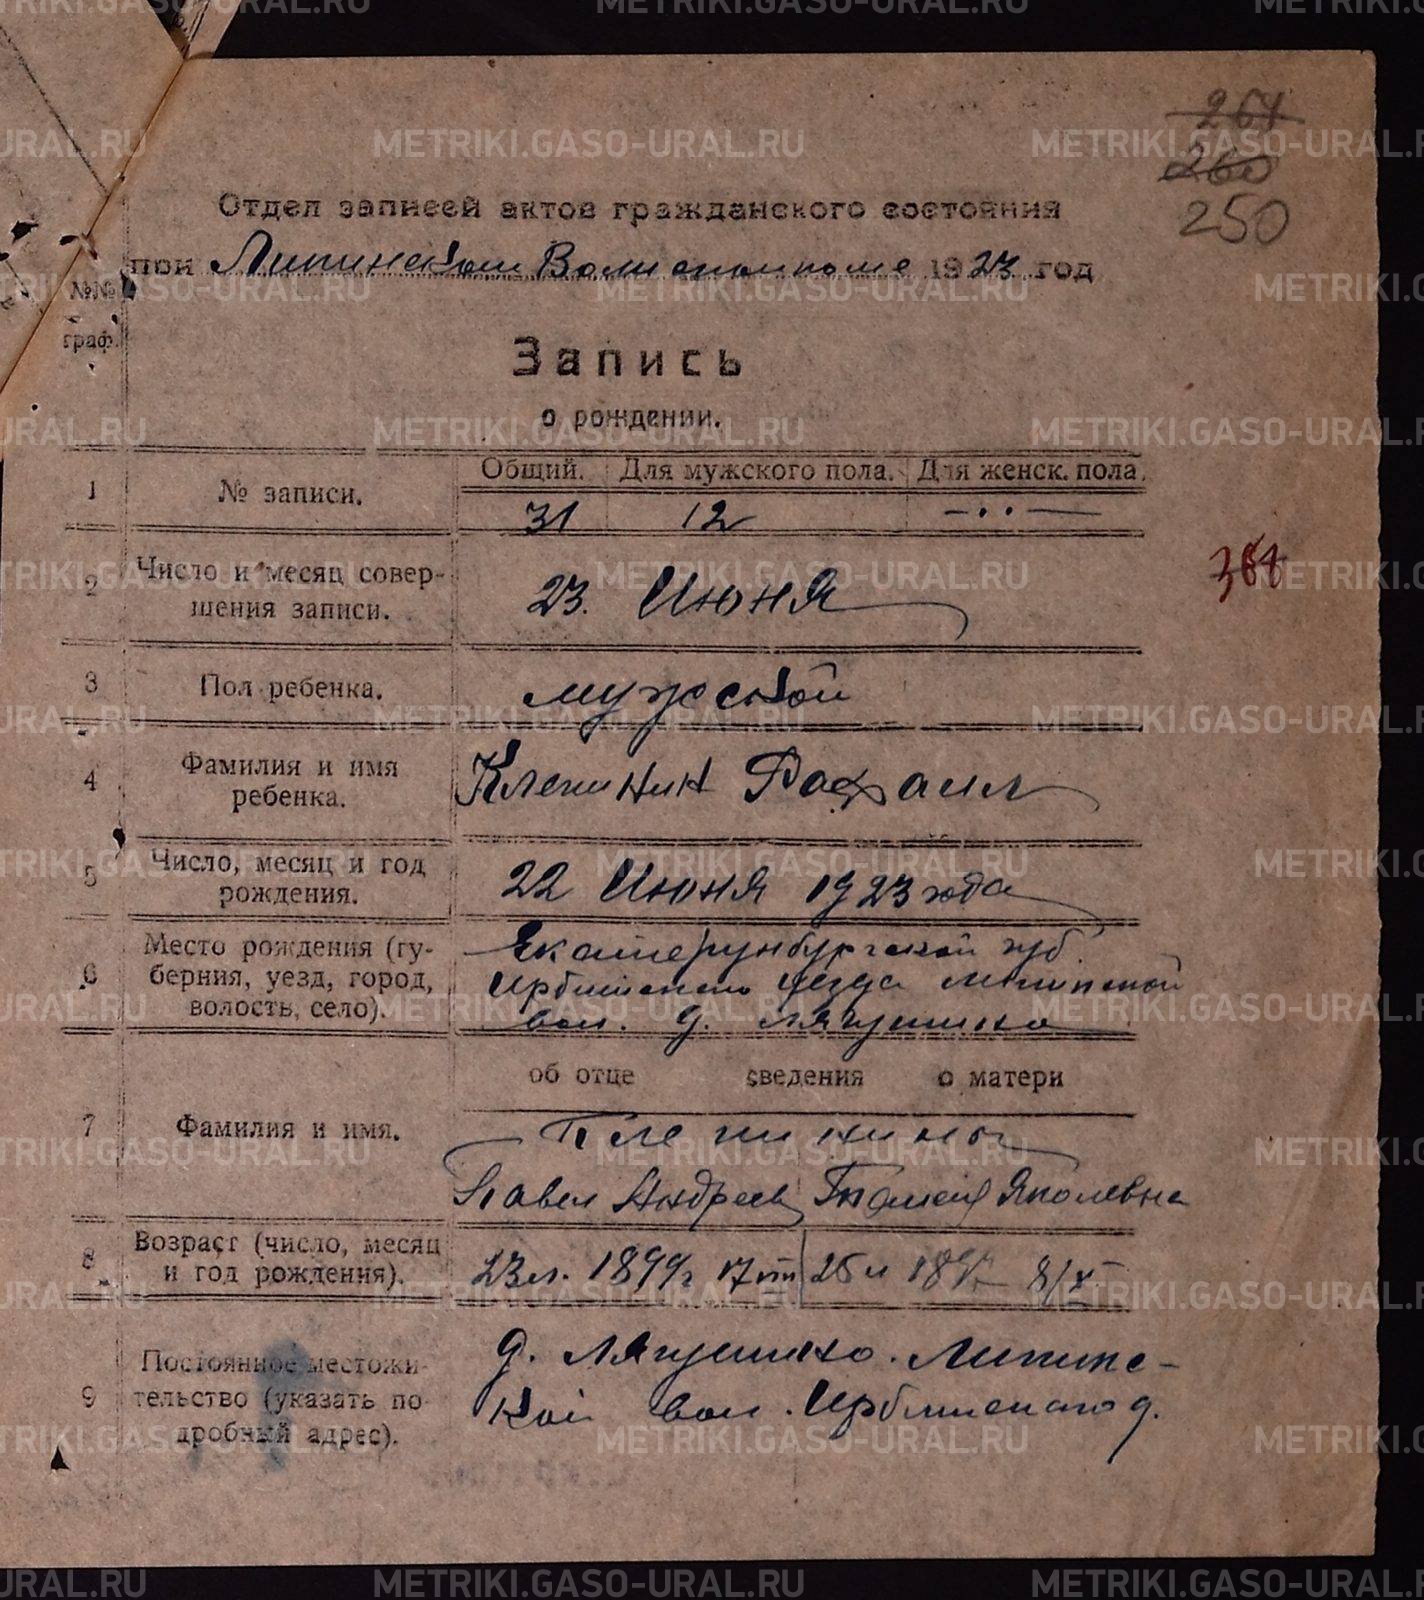 264
260
250
Отдел записей актов гражданского состояния
при Липинском Волисполкоме 1923 год
№№
граф.
Запись
о рождении.
Общий. Для мужского пола. Для женск. пола.
1 № записи. 31 12 —··—
2 Число и месяц совер-
шения записи. 23. Июня
3 Пол ребенка. мужской
4 Фамилия и имя
ребенка. Клепинин Рафаил
5 Число, месяц и год
рождения. 22 Июня 1923 года
6 Место рождения (гу-
берния, уезд, город,
волость, село).
Екатеринбургской губ.
Ирбитского уезда Липинской
вол. д. Лягушино
об отце сведения о матери
7 Фамилия и имя. Клепинины
Павел Андреев Яковлевна
8 Возраст (число, месяц
и год рождения). 23 л. 1899 г 25 л
9 Постоянное местожи-
тельство (указать по-
дробный адрес).
д. Лягушино. Липинс-
кой вол. Ирбитского
METRIKI.GASO-URAL.RU